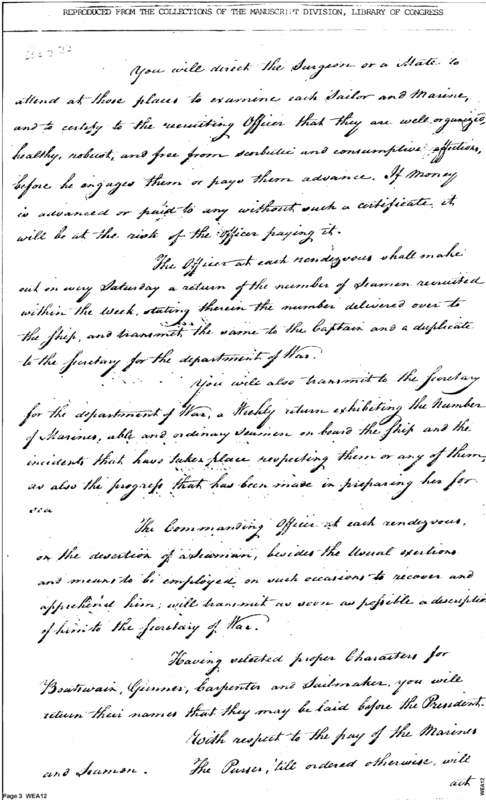 REPRODUCED FROM THE COLLECTIONS OF THE MANUSCRIPT DIVISION, LIBRARY OF CONGRESS
You will direct the Surgeon or a Mate to
attend at those places to examine each Sailor and Marine,
and to certify to the recruiting Officer that they are well organized,
healthy, robust, and free from scorbutic and consumptive affections,
before he engages them or pays them advance. If Money
is advanced or paid to any without such a certificate it
will be at the risk of the Officer paying it.
The Officer at each rendezvous shall make
out on every Saturday a return of the number of Seamen recruited
within the week, stating therein the number delivered over to
the Ship, and transmit the same to the Captain and a duplicate
to the Secretary for the department of War.
You will also transmit to the Secretary
for the department of War, a Weekly return exhibiting the Number
of Marines, able and ordinary Seamen on board the Ship and the
incidents that have taken place respecting them or any of them,
as also the progress that has been made in preparing her for
sea
The Commanding Officer at each rendezvous,
on the desertion of a seaman, besides the Usual exertions
and means to be employed on such occasions to recover and
apprehend him; will transmit as soon as possible a descriptio
of him to the Secretary of War.
Having selected proper Characters for
Boatswain, Gunner, Carpenter and Sailmaker, you will
return their names that they may be laid before the President.
With respect to the pay of the Marines
and Seamen. The Purser, 'till ordered otherwise, will
act
Page 3 WEA12
WEA12